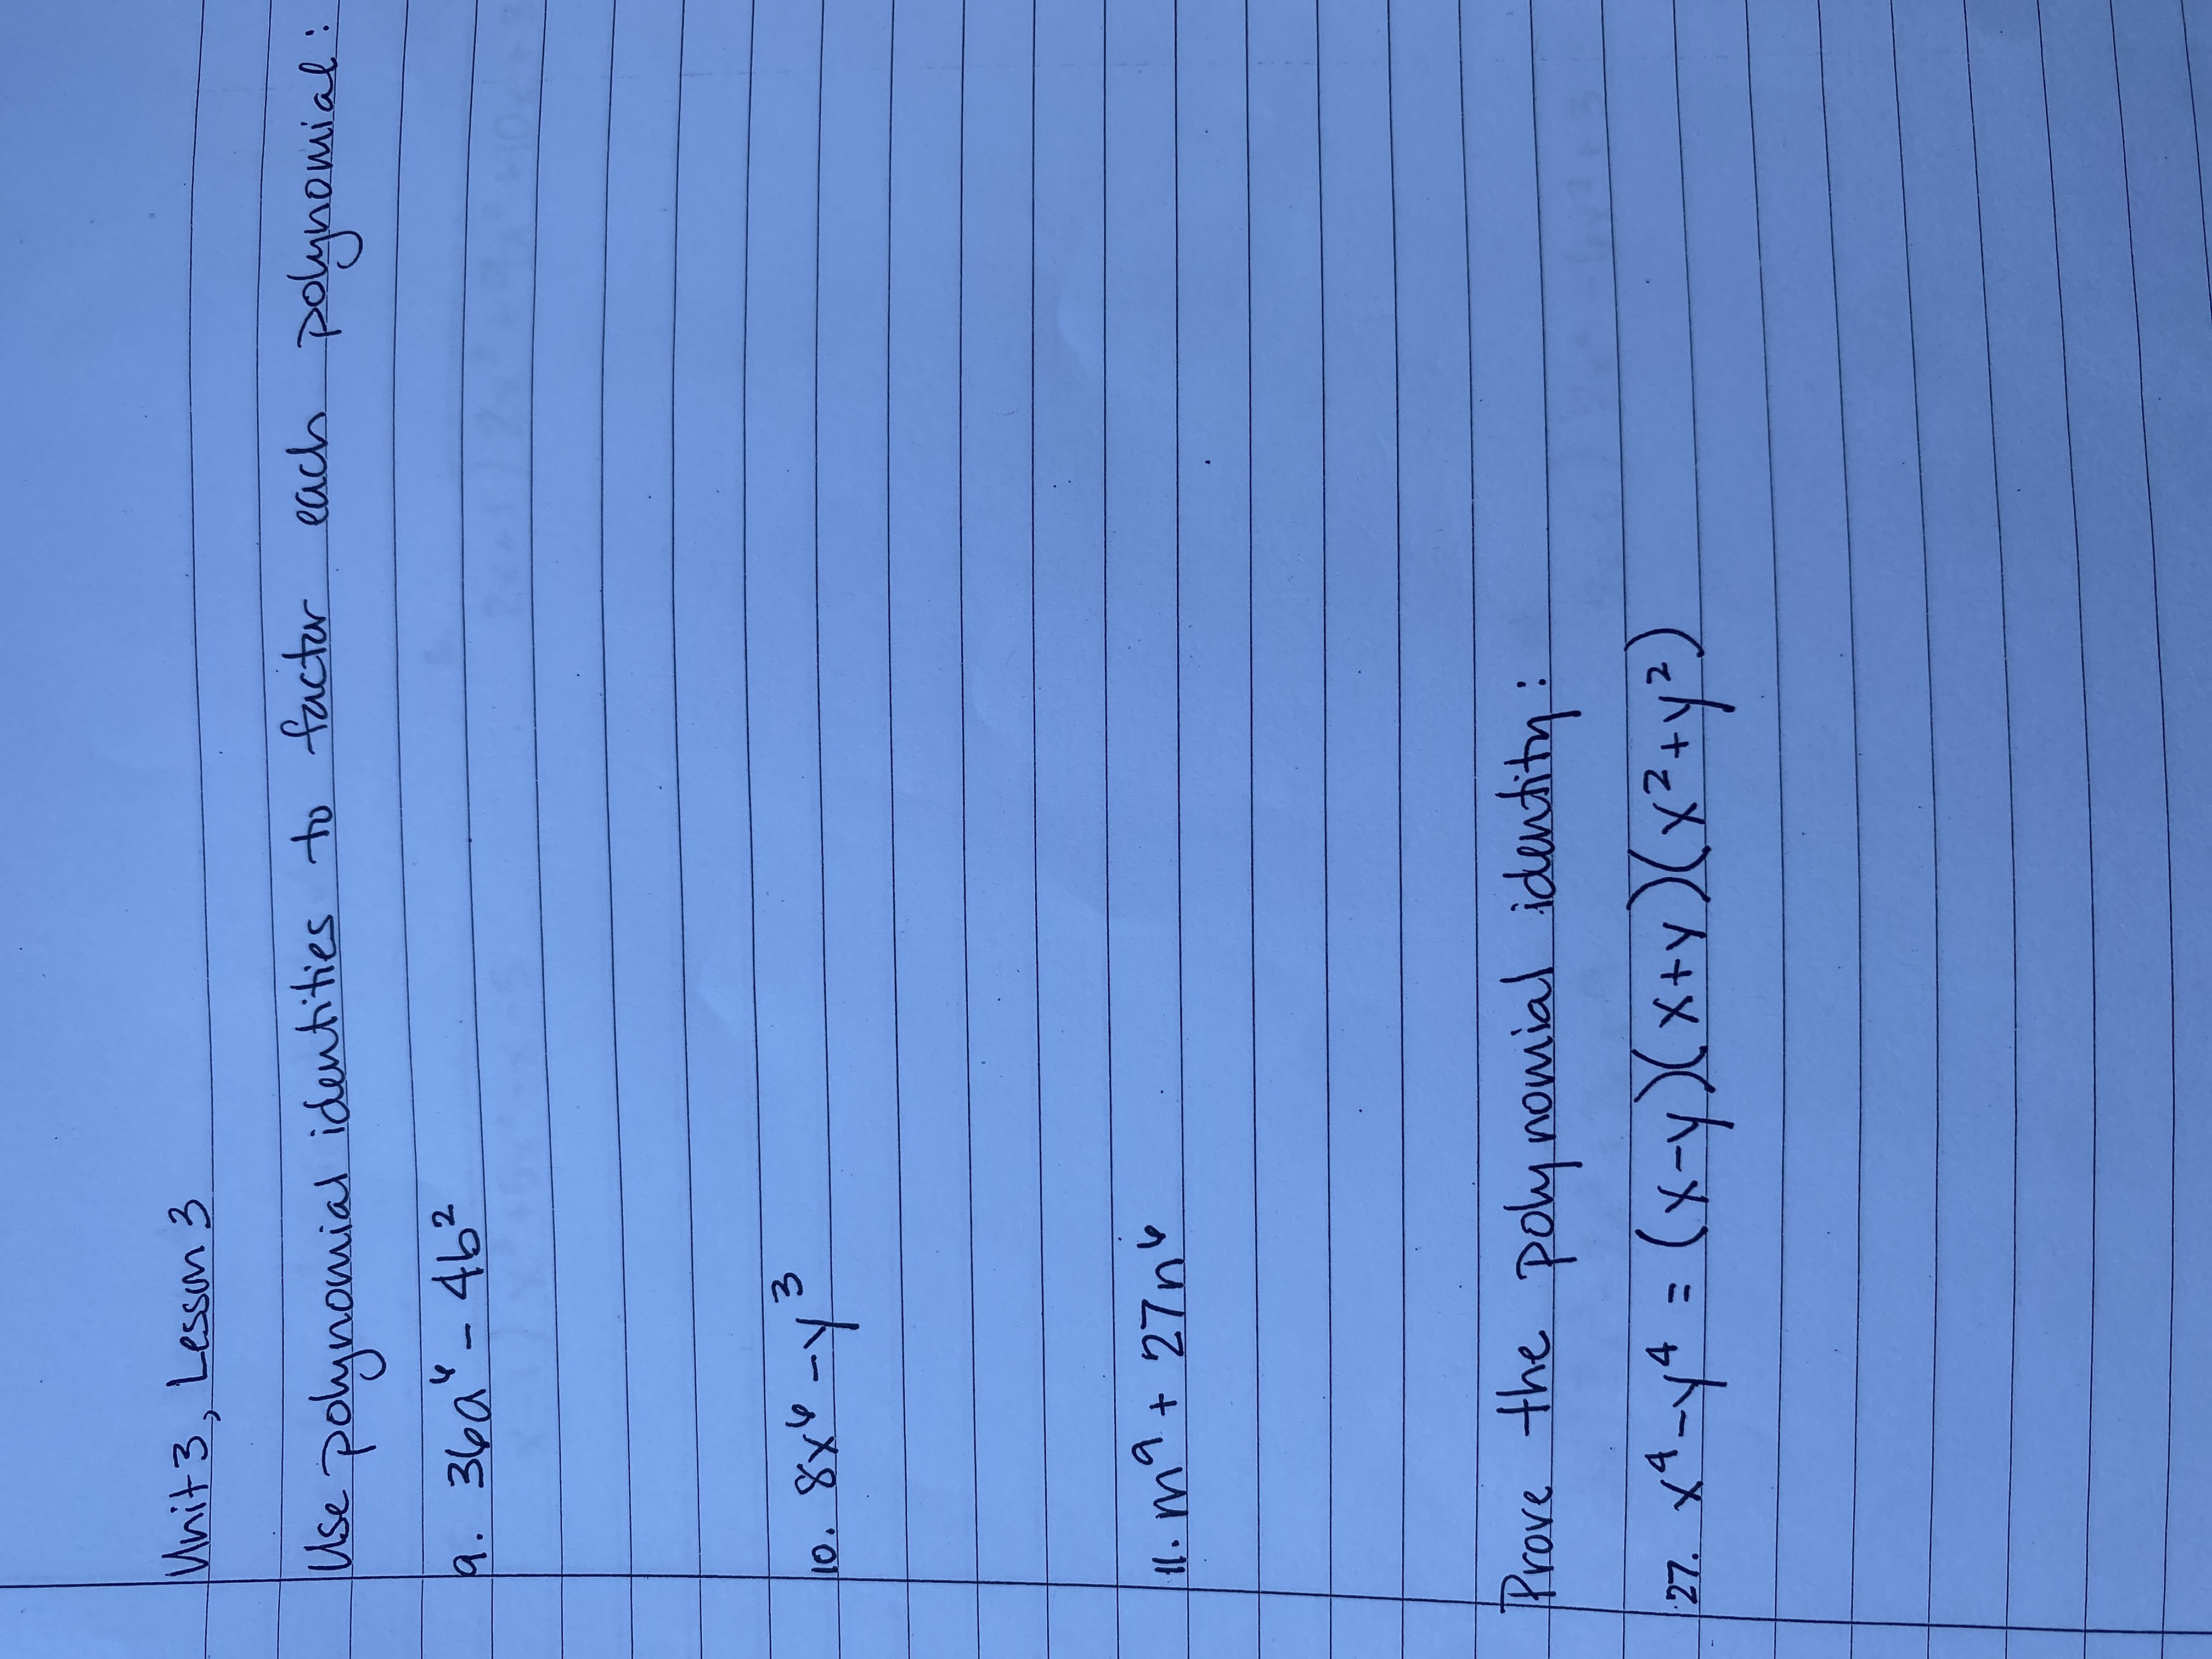 Unit 3, Lesson 3
Use polynomial identities to factor each polynomial:
9. 36a⁶ - 4b²
10. 8x⁶ - y³
11. m⁹ + 27n⁶
Prove the polynomial identity:
27. x⁴ - y⁴ = (x-y)(x+y)(x²+y²)